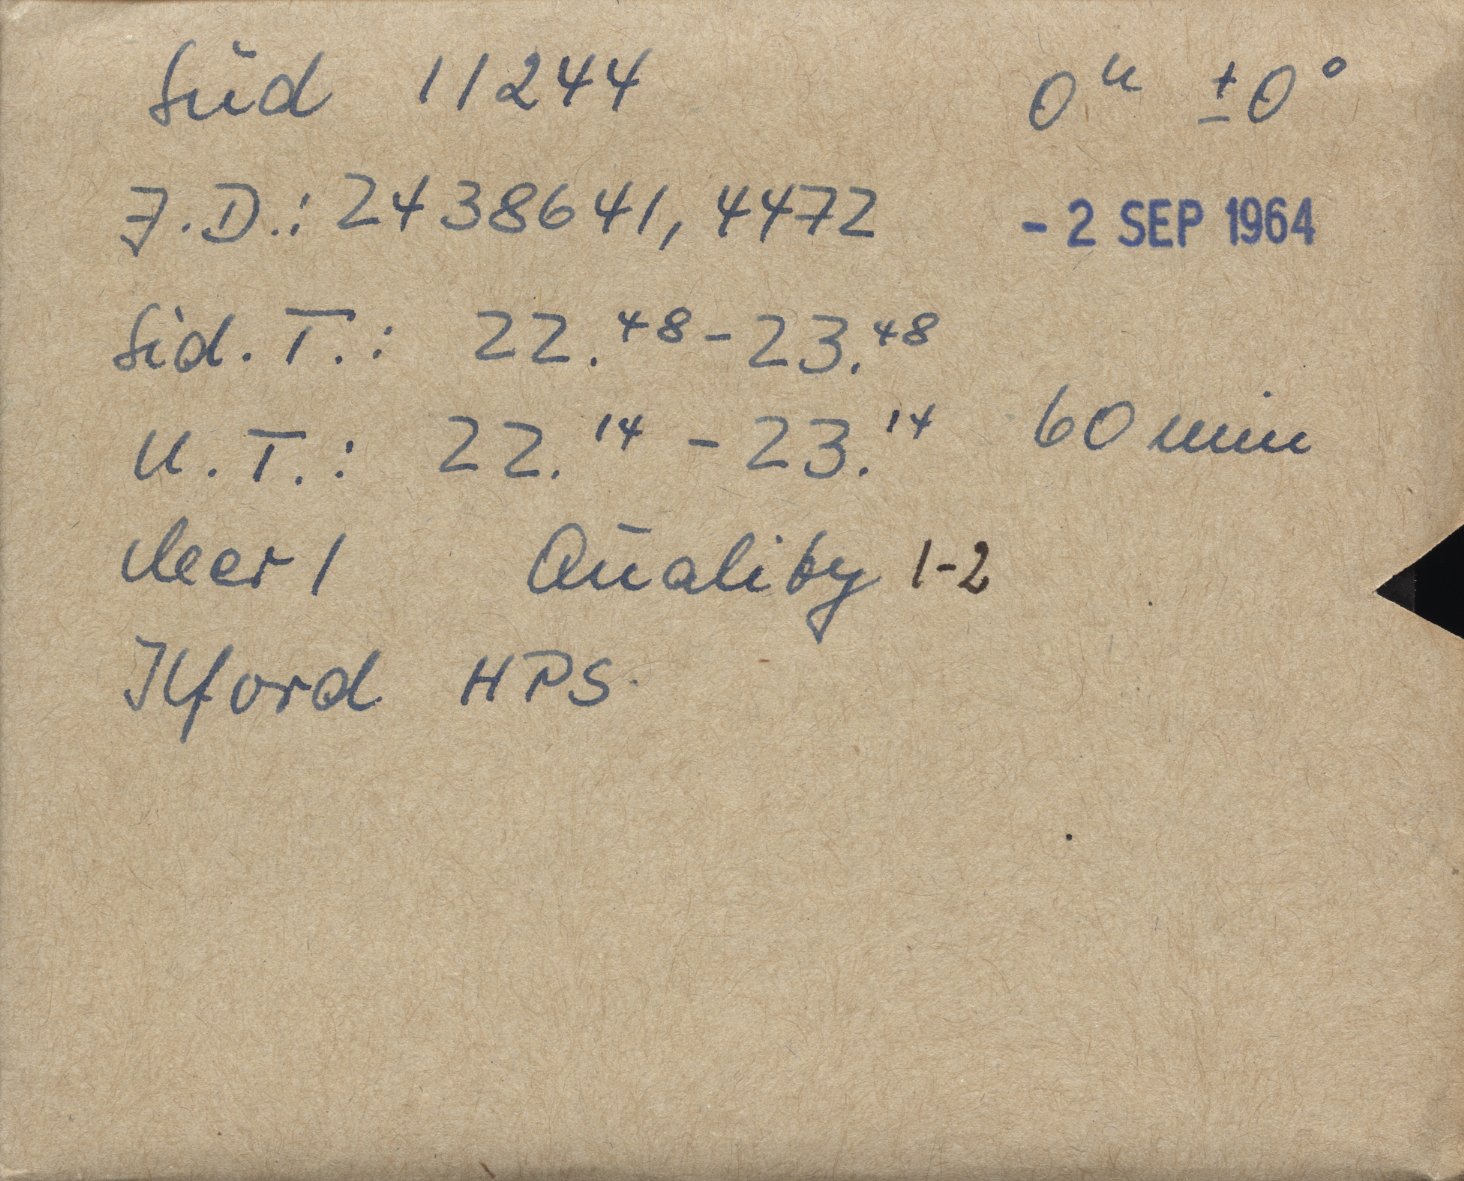 Süd 11244 0ʰ ±0°
J.D.: 2438641,4472 - 2 SEP 1964
Sid. T.: 22.⁴⁸ - 23.⁴⁸
U.T.: 22.¹⁴ - 23.¹⁴ 60 min
1 Quality 1-2
Ilford HPS